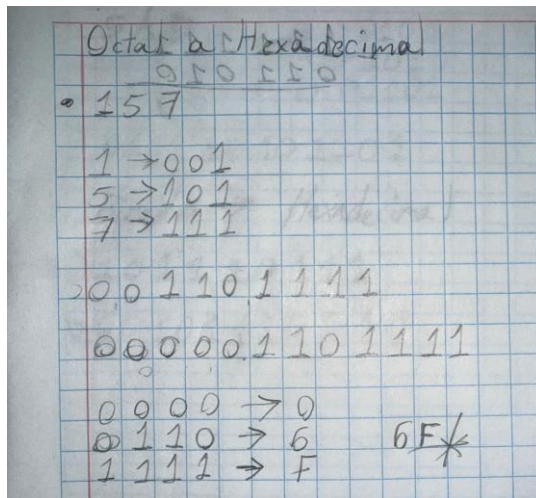 Octal a Hexadecimal
• 157
1 → 001
5 → 101
7 → 111
001101111
000001101111
0000 → 0
0110 → 6
1111 → F
6F